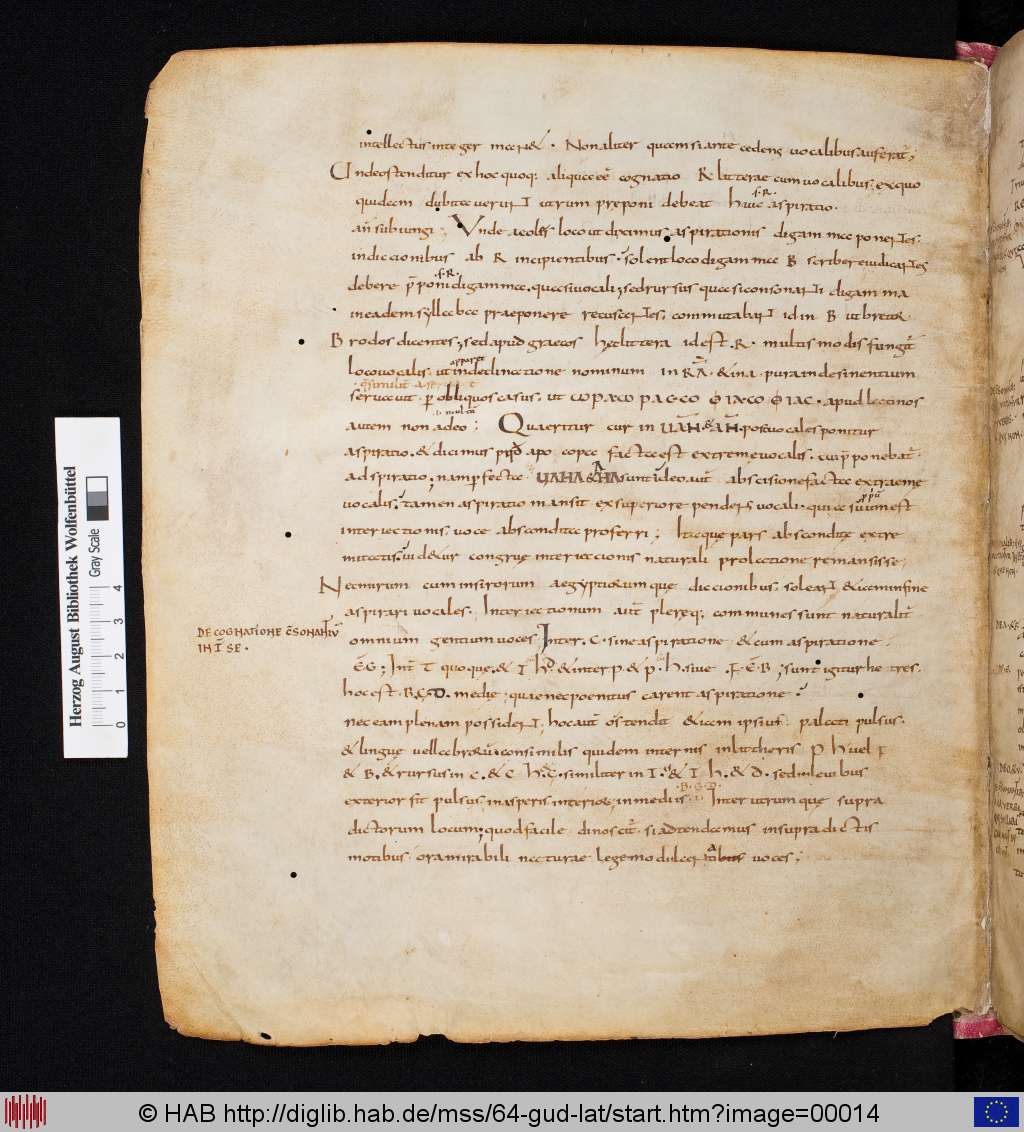 intellectus integer manet. Non aliter quam si antecedens vocalibus auferat̄;
Unde ostenditur ex hoc quoq; aliqua eē cognatio R litterae cum vocalibus, ex quo
quidem dubitaverunt utrum preponi debeat huic aspiratio.
.s. R.
an subiungi; Unde aeoles loco ut diximus aspirationis digamma ponentes
in diccionibus ab R incipientibus. solent loco digamma B scribere iudicantes
debere p̄poni digamma. quasi vocali; sed rursus quasi consonanti digamma
.s. R.
in eadem syllaba praeponere recusantes, commutabant id in B ut bretor
Brodos dicentes; sed apud graecos haec littera id est .R. multis modis fungit̄
loco vocalis. ut in declinatione nominum in RA. & in a. pura indesinentium
servavit p obliquos casus. ut apud latinos
autem non adeo; Quaeritur cur in UAH. & AH. post vocales ponitur
aspiratio. & dicimus apocopa facta est extreme vocalis. cui p̄ponebat̄
adspiratio; nam p̄fecta UAHA & AHA sunt. ideo aut̄ abscisione facta extraeme
vocalis. tamen aspiratio mansit ex superiore pendens vocali. quia suum est
interiectionis. voce abscondita proferri; Itaque pars abscondite extre
mitatis. videtur congrue interieccionis naturali prolatione remansisse;
Nec mirum cum in sirorum aegyptiorumque diccionibus. soleant etiam in fine
aspirari vocales. Interiectionum aut̄ pleręq; communes sunt naturalit̄
DE COGNATIONE C̄SONANTIV̄
INT̄ SE.
omnium gentium voces Inter .C. sine aspiratione & cum aspiratione.
Ē G; Int̄ T quoque. & T h D & inter P & p. h. sive F. Ē B; sunt igitur he tres.
hoc est .B. G. D. medię. quae nec poenitus carent aspiratione.
nec eam plenam possident. hoc aut̄ ostendit etiam ipsius palati pulsus.
& linguę vel labrorū. consimilis quidem in ternis in litteris P h vel F
& B. & rursus in C. & C h. G. similiter in T. & T h. & D. sed in levibus
.B. G. D.
exterior fit pulsus, in asperis interior, in mediis Inter utrumque supra
dictorum locum; quod facile dinoscit̄. si adtendamus in supradictis
motibus ora mirabili naturae lege modulantibus voces;
Herzog August Bibliothek Wolfenbüttel
Gray Scale
0 1 2 3 4
© HAB http://diglib.hab.de/mss/64-gud-lat/start.htm?image=00014